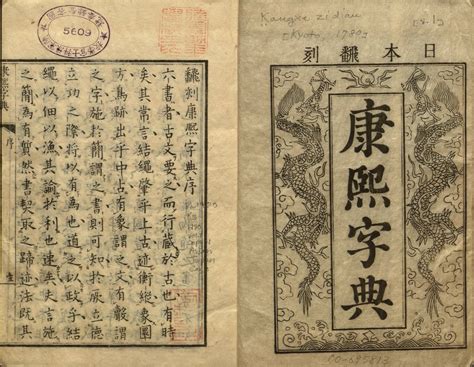 日本飜刻
康熙字典
Kangxi zidian
(Kyoto, 1780)
5609
飜刻康熙字典序
六書者古文要之而行藏於古也有時
矣其常言結繩肇乎上古迹衡縱象圖
方馬跡出乎中古有像謂之文有聲謂
之字施於簡謂之書則可知於立德
立功之際將以有為也道之以政乎結
繩以佃以漁其諭於利也速矣史言施
之簡為有然書契取之迹法既其
康熙字典
序